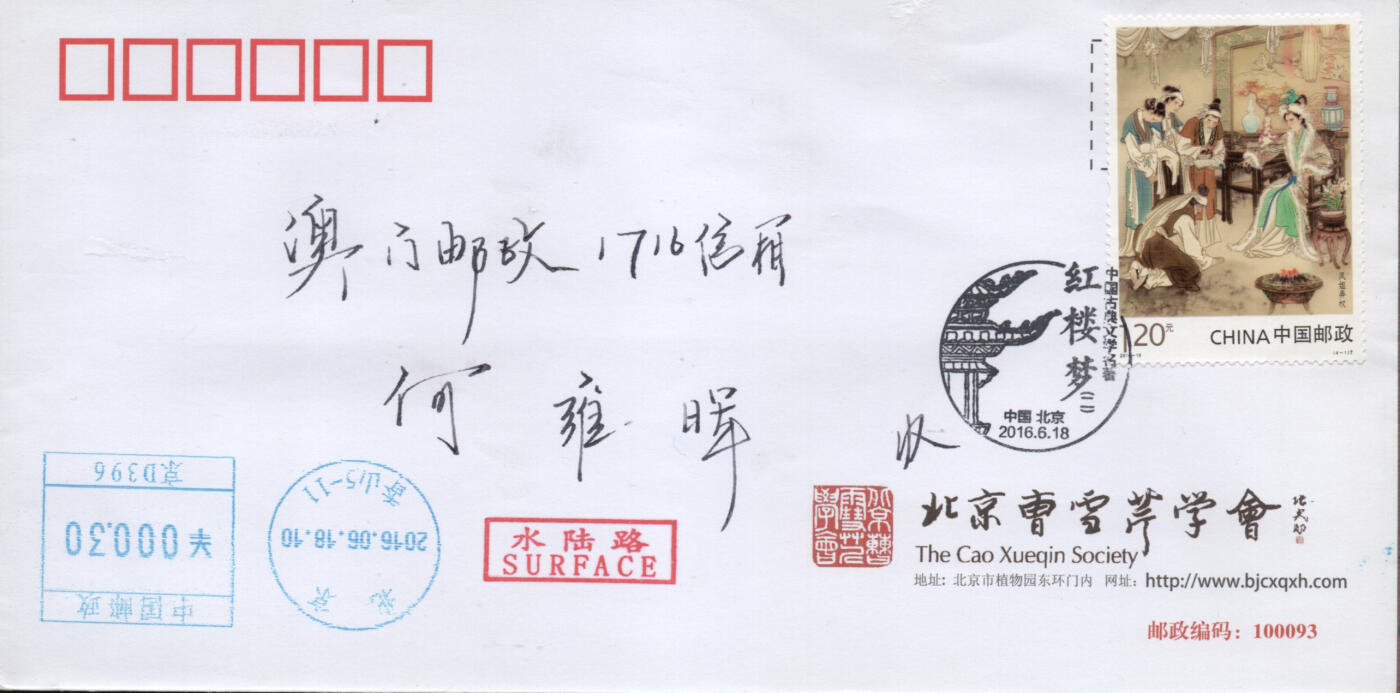 凤姐弄权
1.20元
CHINA 中国邮政
2016-15
(4-1)T
澳门邮政1716信箱
何雍晖 收
中国古典文学名著
红楼梦(二)
中国 北京
2016.6.18
京D396
¥000.30
中国邮政
香山5-11
2016.06.18.10
北京
水陆路
SURFACE
北京曹雪芹学會
北京曹雪芹學會
The Cao Xueqin Society
地址: 北京市植物园东环门内 网址: http://www.bjcxqxh.com
邮政编码: 100093